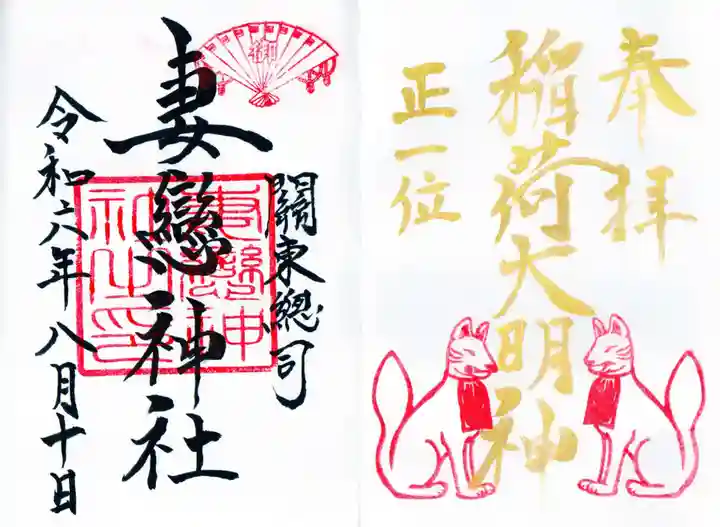 奉拝
稲荷大明神
正一位
御
關東總司
妻戀神社
妻戀神社之印
令和六年八月十日